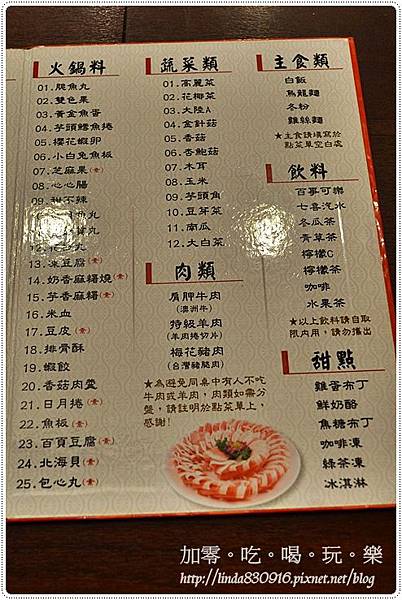 火鍋料
01.脆魚丸
02.雙色果
03.黃金魚蛋
04.芋頭鱈魚捲
05.櫻花蝦卵
06.小白兔魚板
07.芝麻果(素)
08.心心腸
09.甜不辣
12.
13.凍豆腐(素)
14.奶香麻糬燒(素)
15.芋香麻糬(素)
16.米血
17.豆皮(素)
18.排骨酥
19.蝦餃
20.香菇肉羹
21.日月捲(素)
22.魚板(素)
23.百頁豆腐(素)
24.北海貝(素)
25.包心丸(素)
蔬菜類
01.高麗菜
02.花椰菜
03.大陸A
04.金針菇
05.香菇
06.杏鮑菇
07.木耳
08.玉米
09.芋頭角
10.豆芽菜
11.南瓜
12.大白菜
肉類
肩胛牛肉
(澳洲牛)
特級羊肉
(羊肉捲切片)
梅花豬肉
(台灣豬腿肉)
★為避免同桌中有人不吃
牛肉或羊肉,肉類如需分
盤,請註明於點菜單上,
感謝!
主食類
白飯
烏龍麵
冬粉
雞絲麵
★主食請填寫於
點菜單空白處
飲料
百事可樂
七喜汽水
冬瓜茶
青草茶
檸檬C
檸檬茶
咖啡
水果茶
★以上飲料請自取
限內用,請勿攜出
甜點
雞蛋布丁
鮮奶酪
焦糖布丁
咖啡凍
綠茶凍
冰淇淋
加零。吃。喝。玩。樂
http://linda830916.pixnet.net/blog